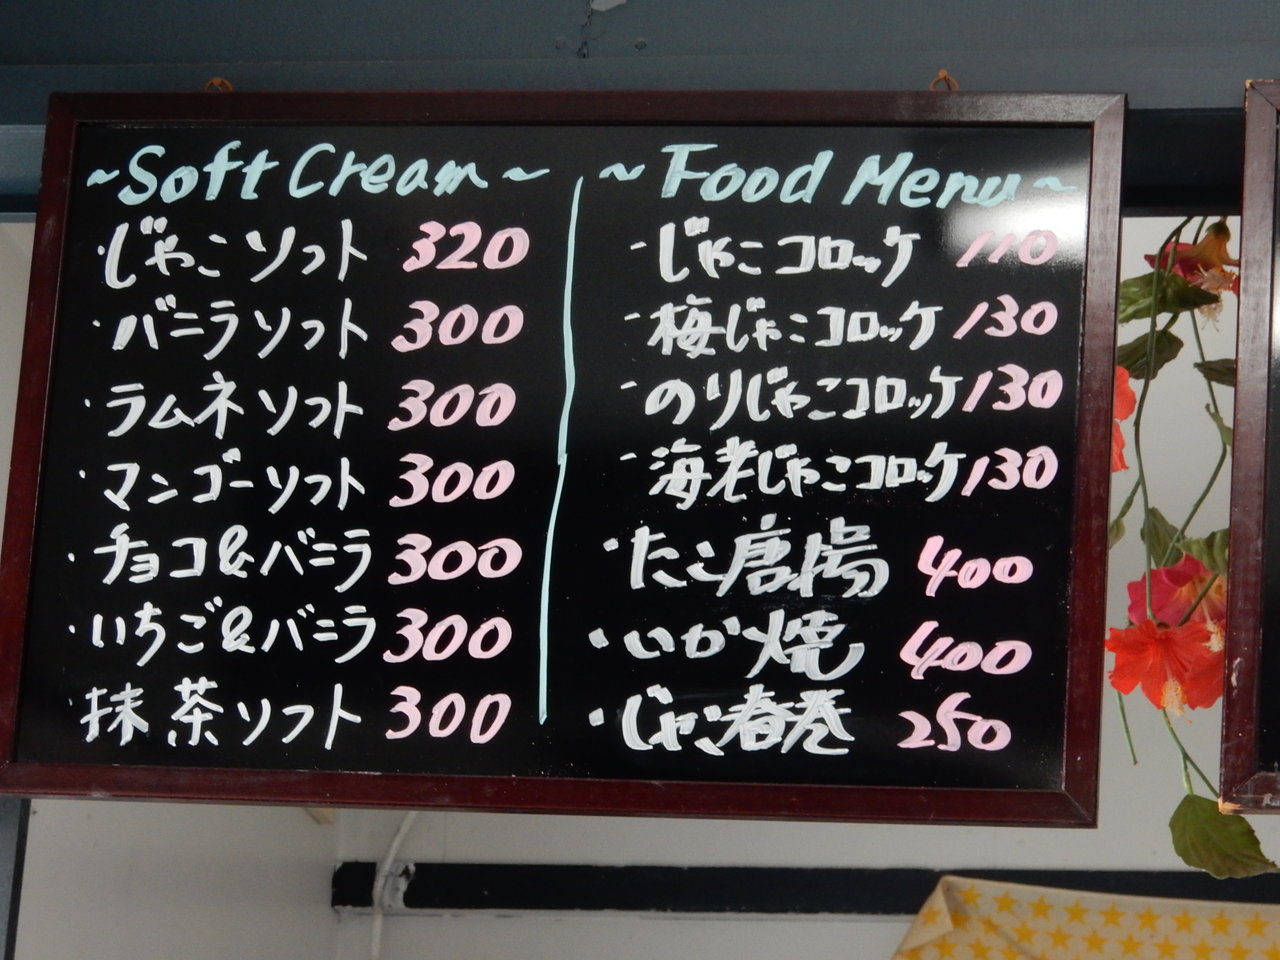 ~Soft Cream~
・じゃこソフト 320
・バニラソフト 300
・ラムネソフト 300
・マンゴーソフト 300
・チョコ&バニラ 300
・いちご&バニラ 300
・抹茶ソフト 300
~Food Menu~
-じゃこコロッケ 110
-梅じゃこコロッケ 130
-のりじゃこコロッケ 130
-海老じゃこコロッケ 130
・たこ唐揚 400
・いか焼 400
・じゃこ春巻 250